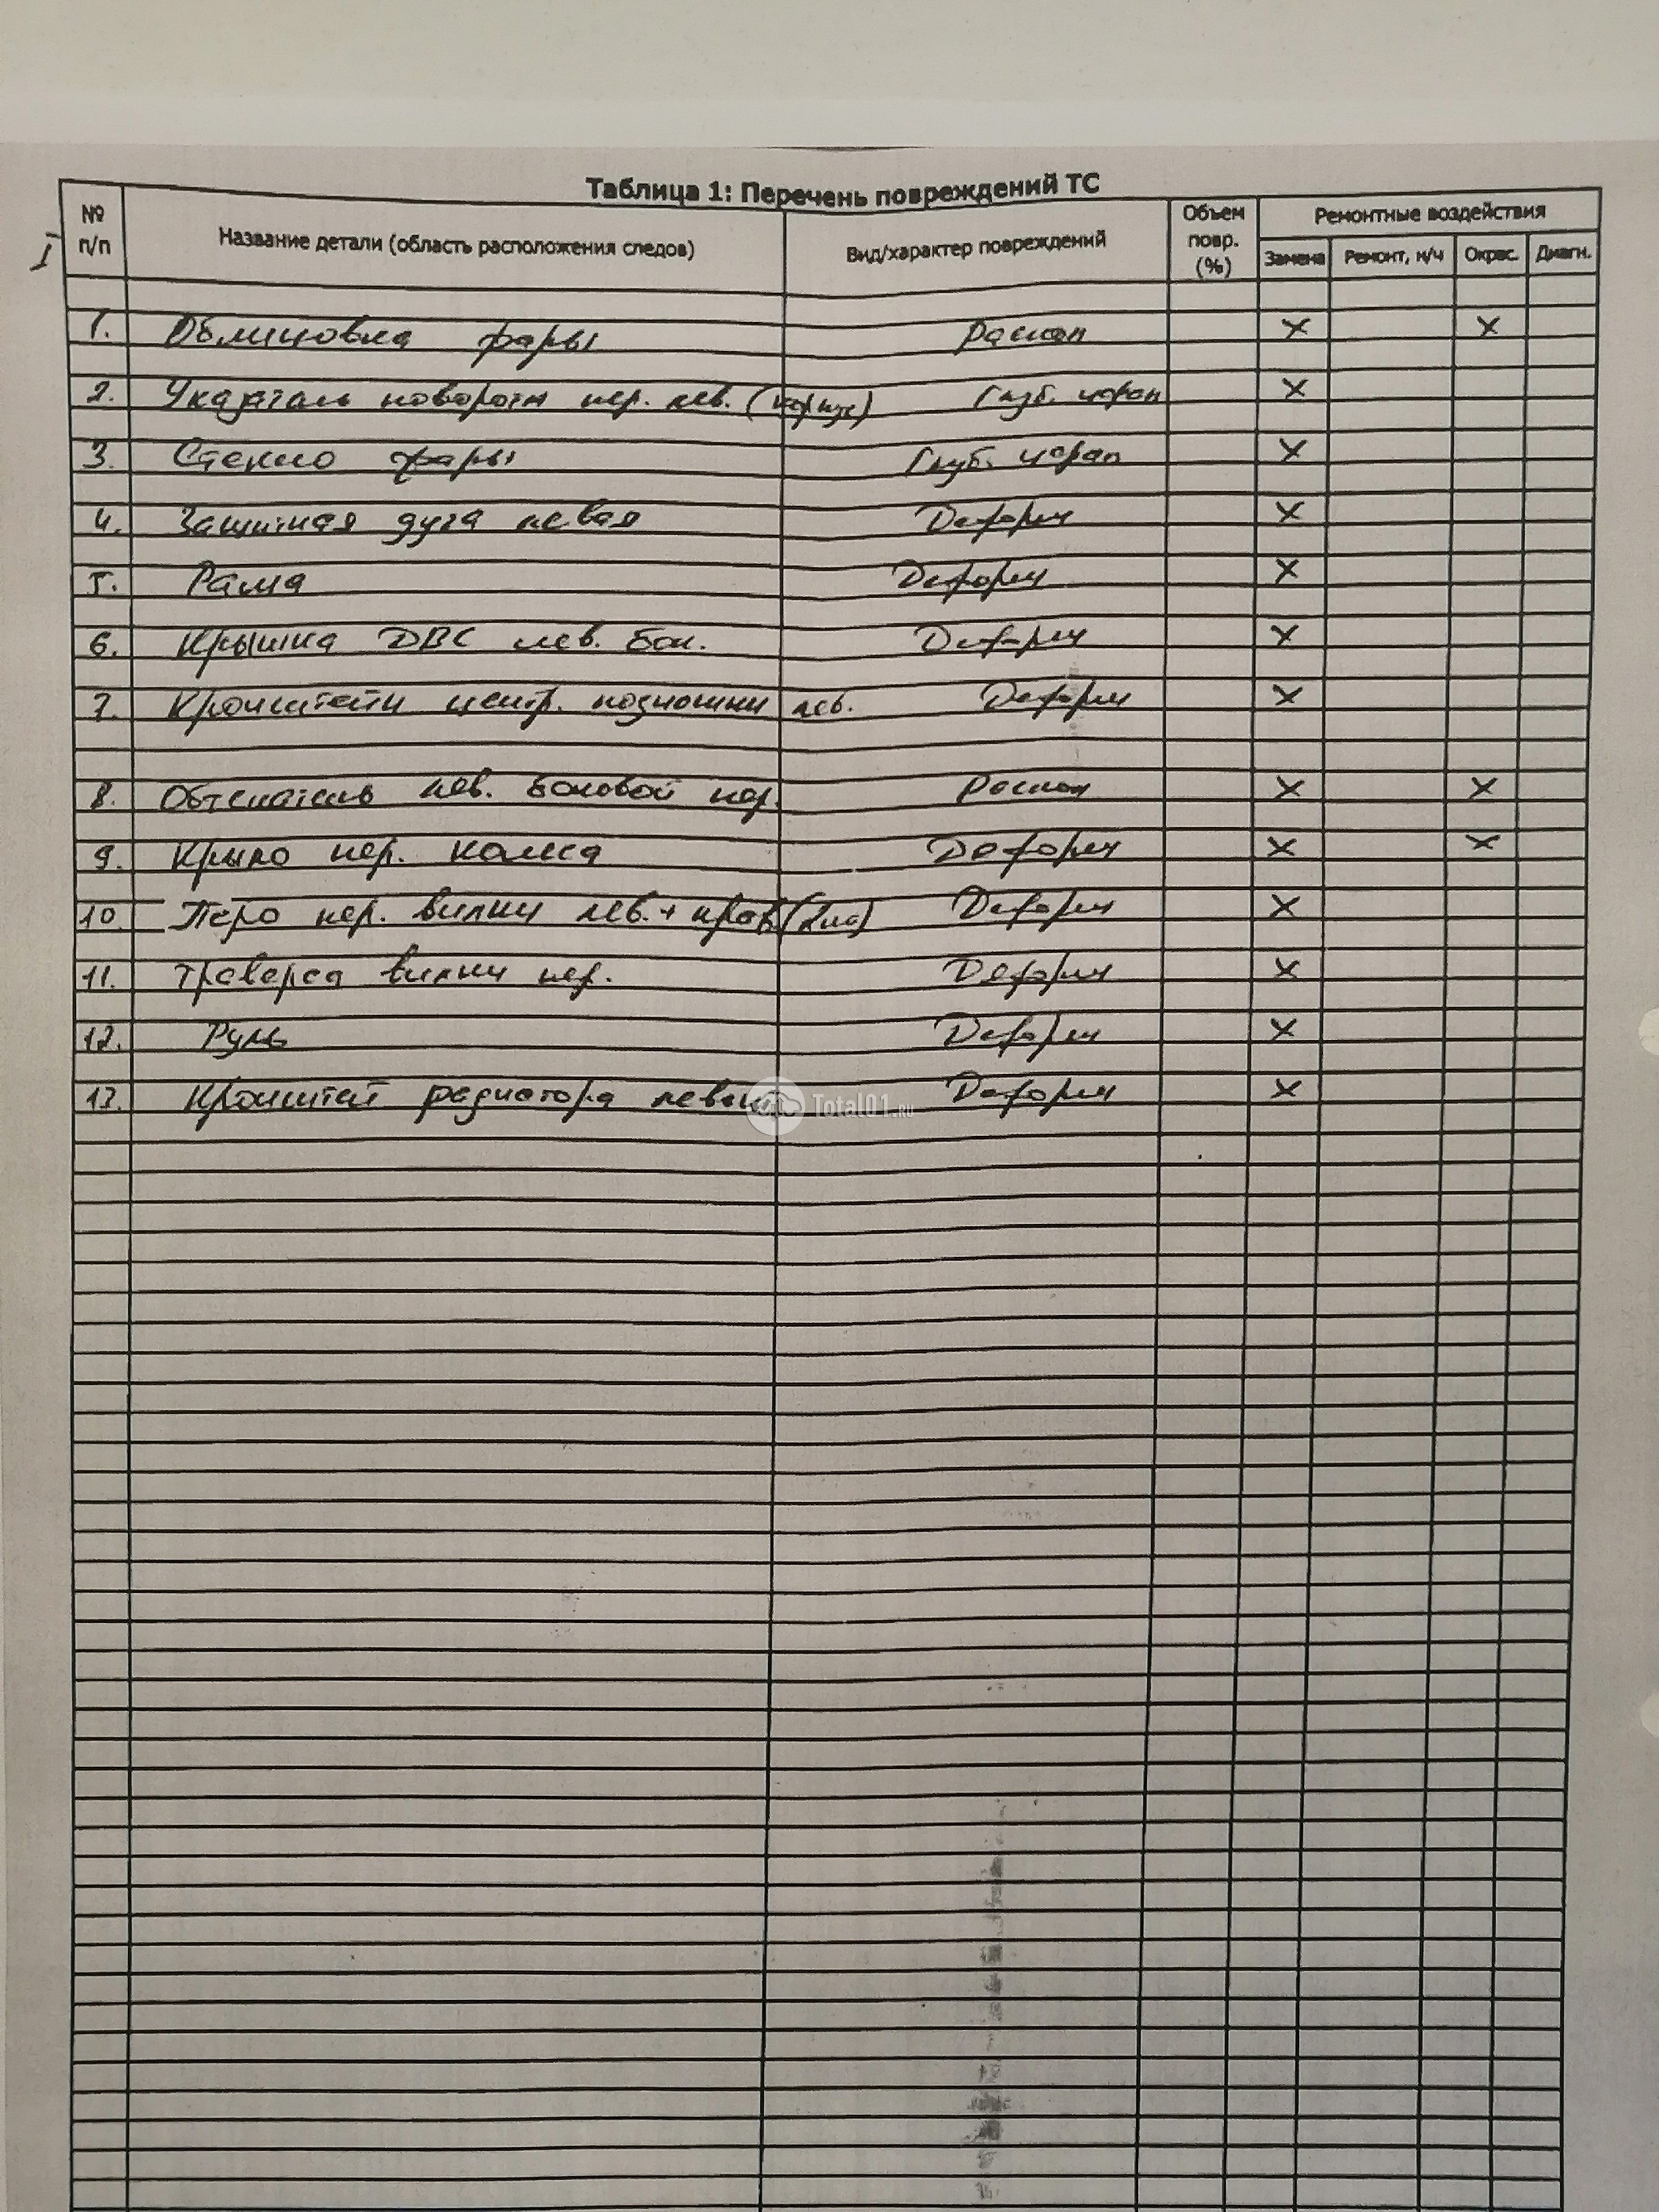 Таблица 1: Перечень повреждений ТС
№ п/п Название детали (область расположения следов) Вид/характер повреждений Объем повр. (%) Ремонтные воздействия
Замена Ремонт, н/ч Окрас. Диагн.
1. Облицовка фары Раскол X X
2. Указатель поворота пер. лев. (корпус) Глуб. царап X
3. Стекло фары Глуб. царап X
4. Защитная дуга левая Деформ X
5. Рама Деформ X
6. Крышка ДВС лев. бок. Деформ X
7. Кронштейн центр. подножки лев. Деформ X
8. Обтекатель лев. боковой пер. Раскол X X
9. Крыло пер. колеса Деформ X X
10. Перо пер. вилки лев. + прав Деформ X
11. Траверса вилки пер. Деформ X
12. Руль Деформ X
13. Кронштей радиатора левый Деформ X
Total01.RU